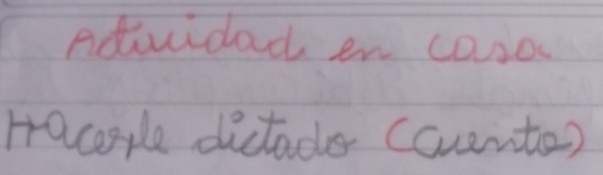 Actividad en casa
Hacerle dictado (cuento)